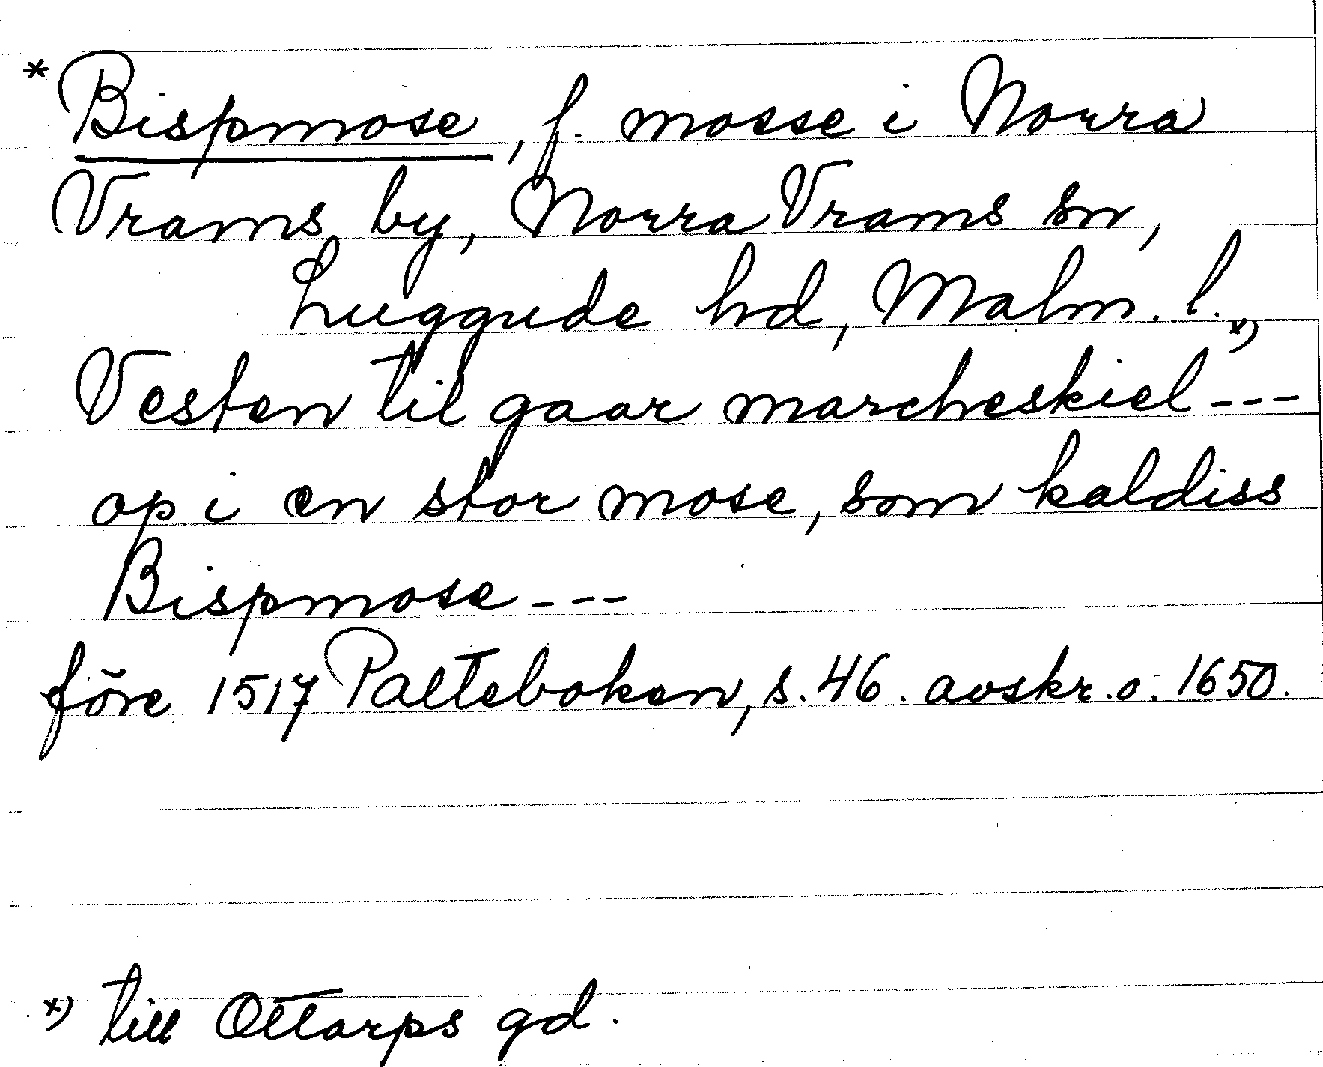 * Bispmose, f. mosse i Norra
Vrams by, Norra Vrams sn,
Luggude hd, Malm. l.
Vesten til gaar marcheskiel --- x)
op i en stor mose, som kaldiss
Bispmose ---
före 1517 Palteboken, s. 46. avskr. o. 1650.
x) till Ottarps gd.